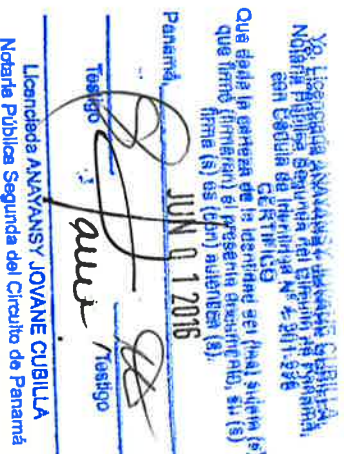 Yo, Licenciada ANAYANSY JOVANE CUBILLA
Notaria Pública Segunda del Circuito de Panamá,
con Cédula de Identidad N° 4-201-226
CERTIFICO
Que dada la certeza de la identidad del (los) sujeto (s)
que firmó (firmaron) el presente documento, su (s)
firma (s) es (son) auténtica (s).
JUN 01 2016
Panamá
Testigo
Testigo
Licenciada ANAYANSY JOVANE CUBILLA
Notaria Pública Segunda del Circuito de Panamá